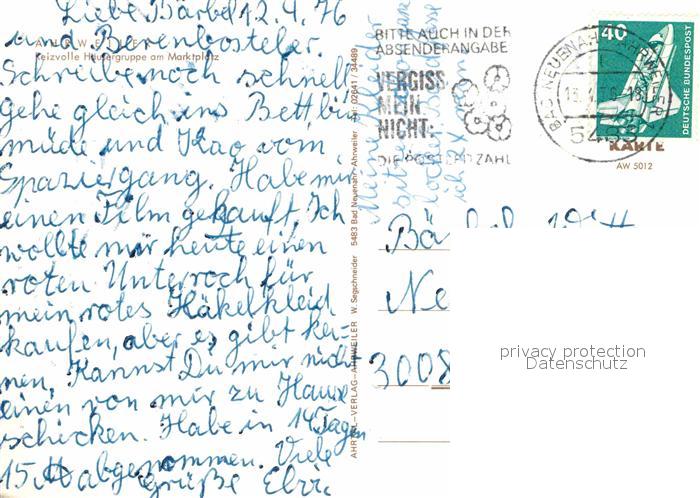 Liebe Bärbel 12.4.76
und Berenbosteler.
AHRWEILER
Reizvolle Häusergruppe am Marktplatz
Schreibe noch schnell
gehe gleich ins Bett bin
müde und Kao vom
Spaziergang. Habe mir
einen Film gekauft. Ich
wollte mir heute einen
roten Unterroch für
mein rotes Häkelkleid
kaufen, aber es gibt kei=
nen. Kannst Du mir
einen von mir zu Hause
schicken. Habe in 14 Tagen
15 abgenommen. Viele
Grüße
AHRTAL-VERLAG-AHRWEILER W. Segschneider 5483 Bad Neuenahr-Ahrweiler Tel: 02641 / 34489
Meine Kleider
locker
BITTE AUCH IN DER
ABSENDERANGABE
VERGISS
MEIN
NICHT:
DIE POSTLEITZAHL
BAD NEUENAHR-AHRWEILER
5483
40
DEUTSCHE BUNDESPOST
KARTE
AW 5012
Bä
Ne
3008
privacy protection
Datenschutz